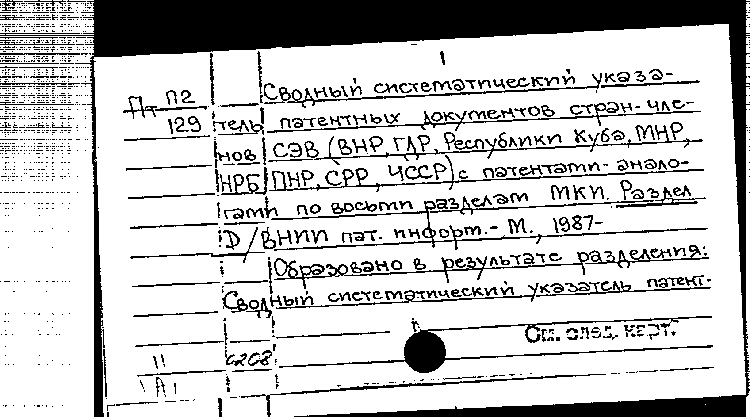 1
Пт П2 Сводный систематический указа-
129 тель патентных документов стран-чле-
нов СЭВ (ВНР, ГДР, Республики Куба, МНР,
НРБ, ПНР, СРР, ЧССР) с патентами-анало-
гами по восьми разделам МКИ. Раздел
D / ВНИИ пат. информ. - М., 1987-
Образовано в результате разделения:
Сводный систематический указатель патент-
См. след. карт.